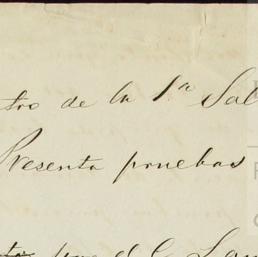 tro de la 1ª Sal
Presenta pruebas
por el C.